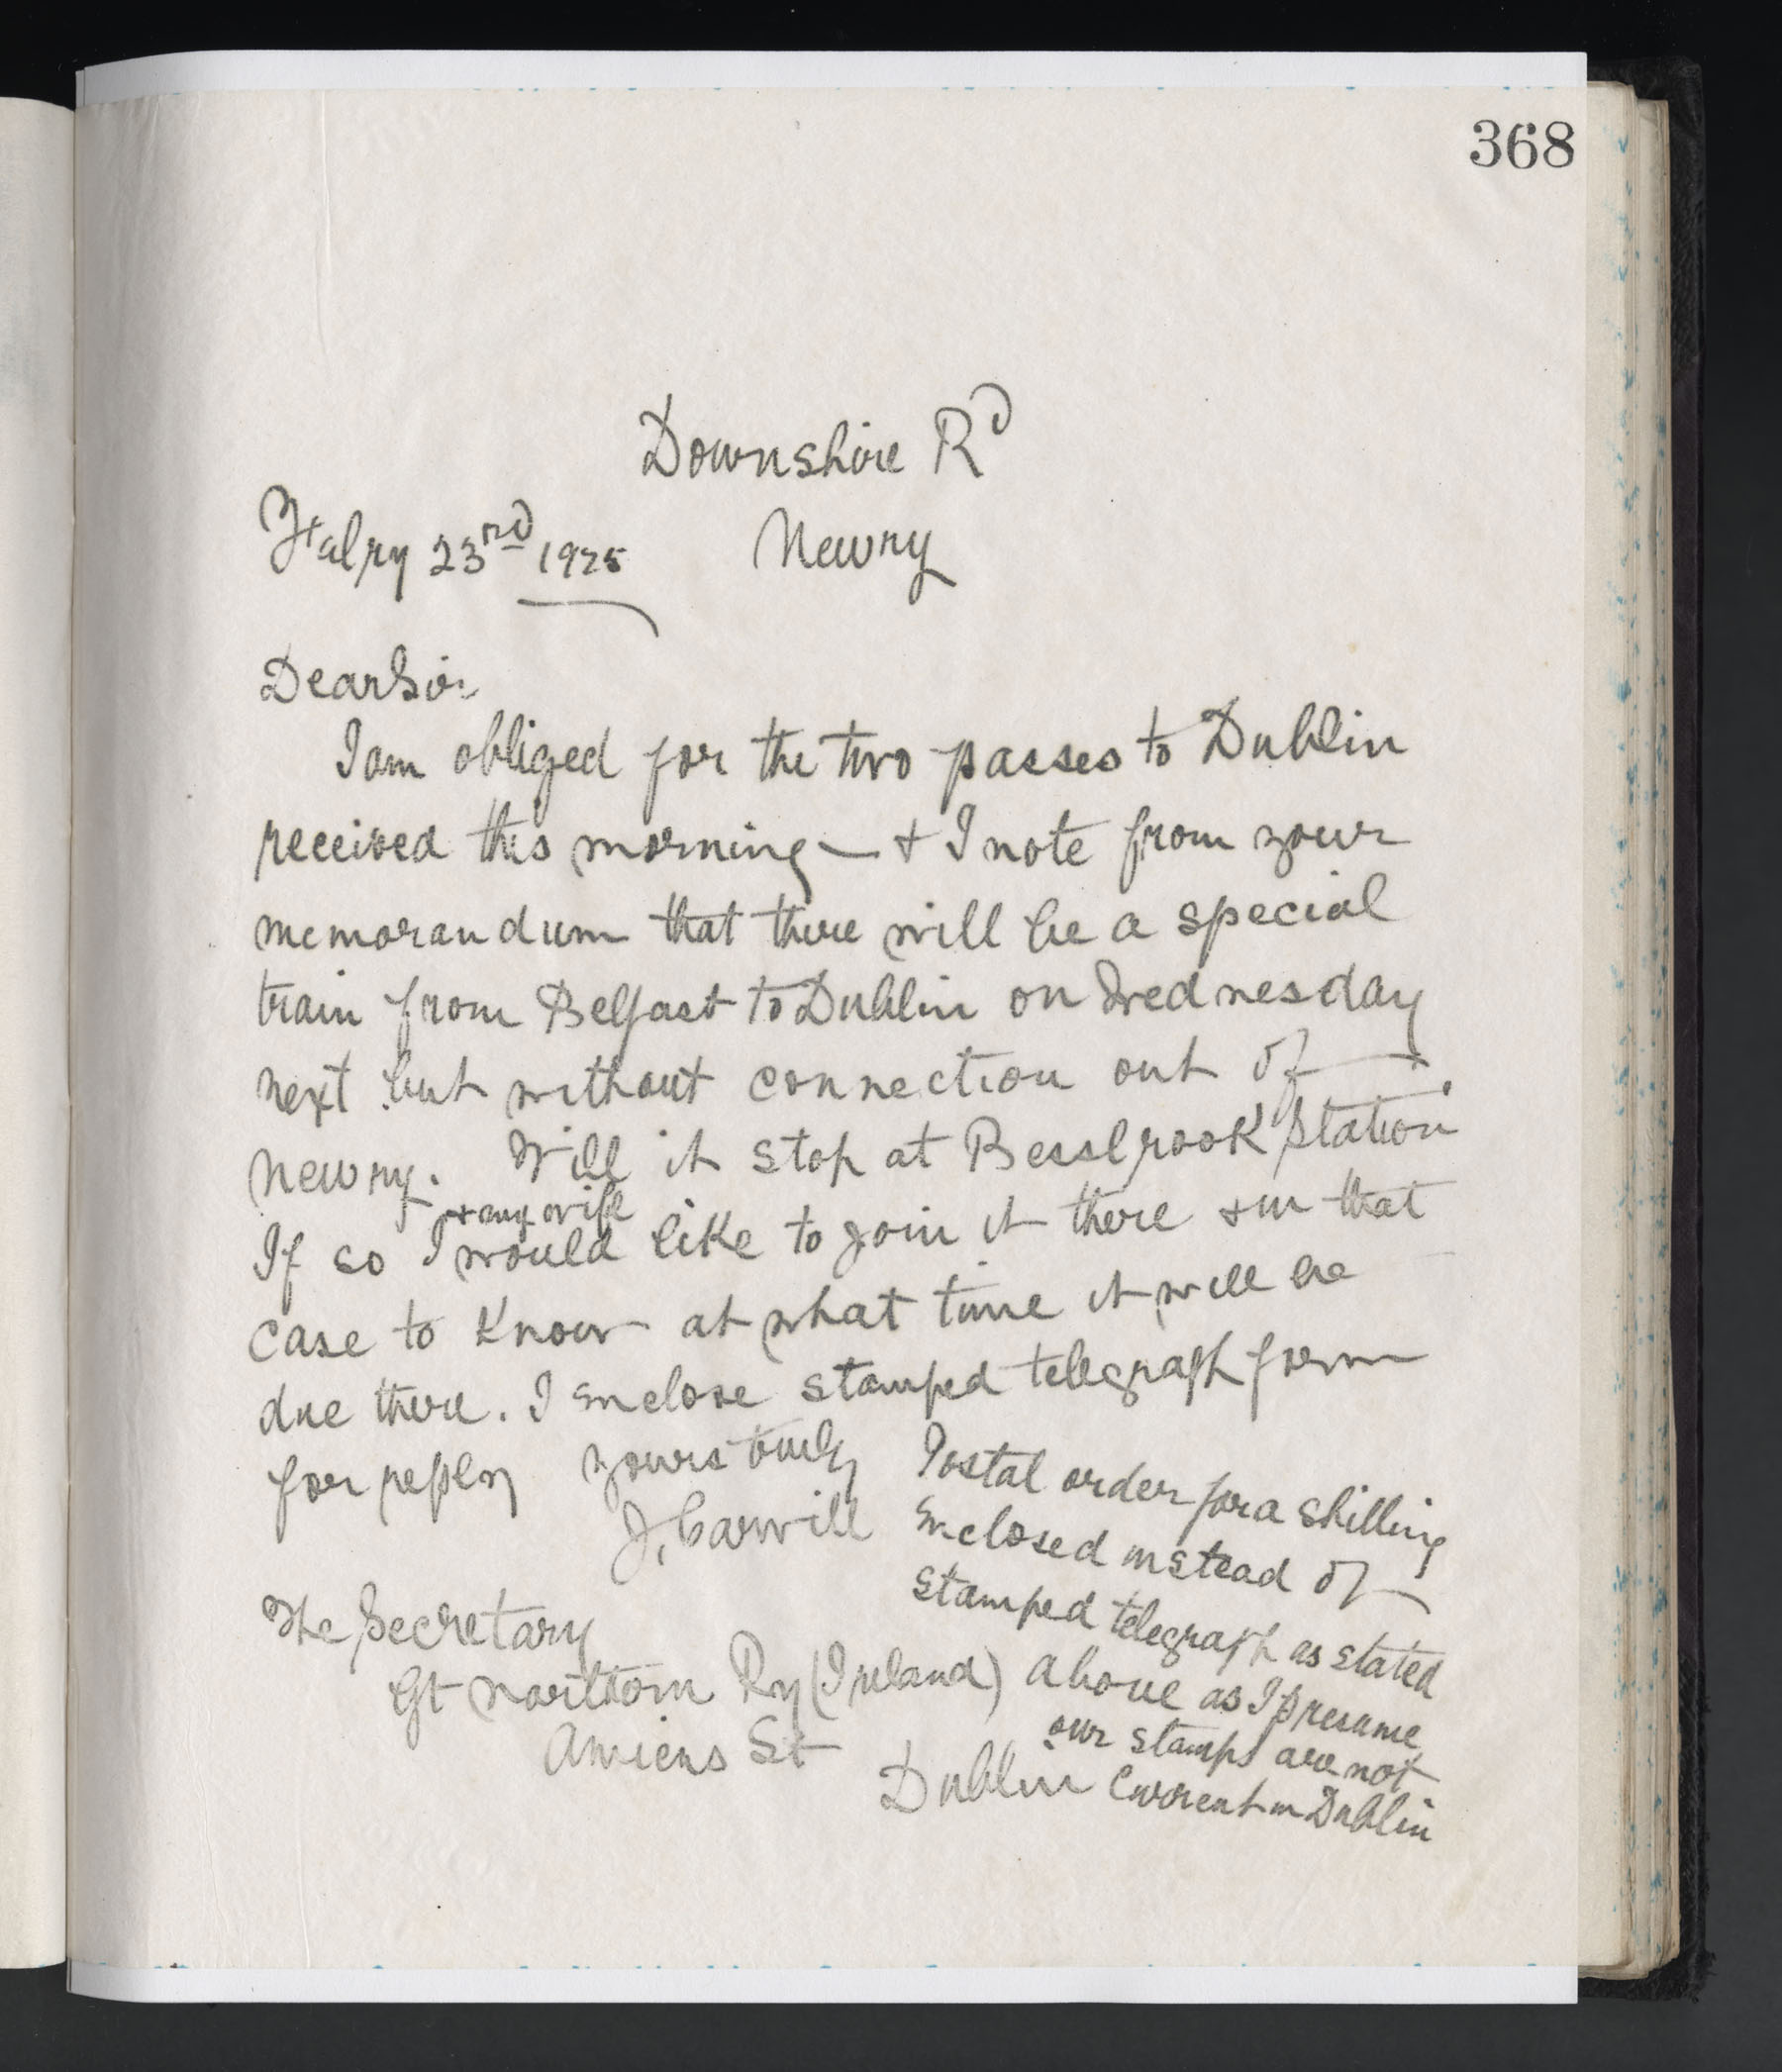 368
Downshire Rd
Febry 23rd 1925
Newry
Dear Sir
I am obliged for the two passes to Dublin
received this morning — + I note from your
memorandum that there will be a special
train from Belfast to Dublin on Wednesday
next but without connection out of
Newry. Will it stop at Bessbrook Station
+ my wife
If so I would like to join it there + in that
case to know at what time it will be
due there. I enclose stamped telegraph form
for reply yours truly
J, Carvill
Postal order for a shilling
enclosed instead of
stamped telegraph as stated
above as I presume
our stamps are not
current in Dublin
The Secretary
Gt Northern Ry (Ireland)
Amiens St
Dublin